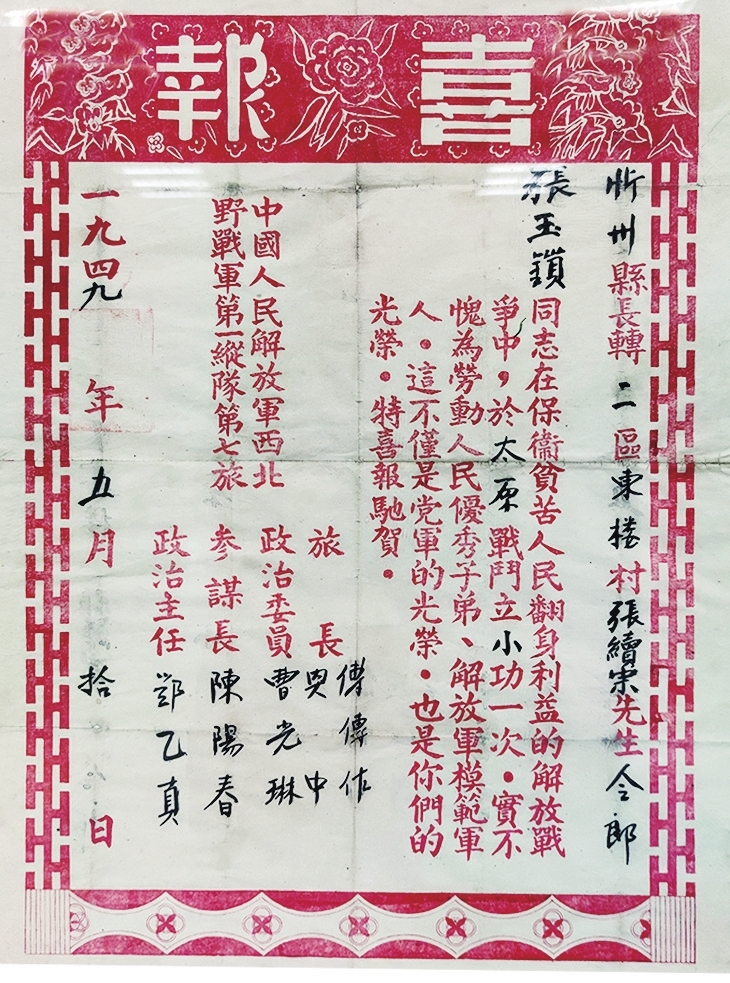 喜報
忻州縣長轉二區東楼村張續先生令郎
張玉鎖同志在保衞貧苦人民翻身利益的解放戰
爭中，於太原戰鬥立小功一次。實不
愧為勞動人民優秀子弟、解放軍模範軍
人。這不僅是党軍的光榮。也是你們的
光榮。特喜報馳賀。
中國人民解放軍西北
野戰軍第一縱隊第七旅
旅長 傅傳作
中
政治委員 曹光琳
參謀長 陳陽春
政治主任 鄧乙真
一九四九年五月拾日